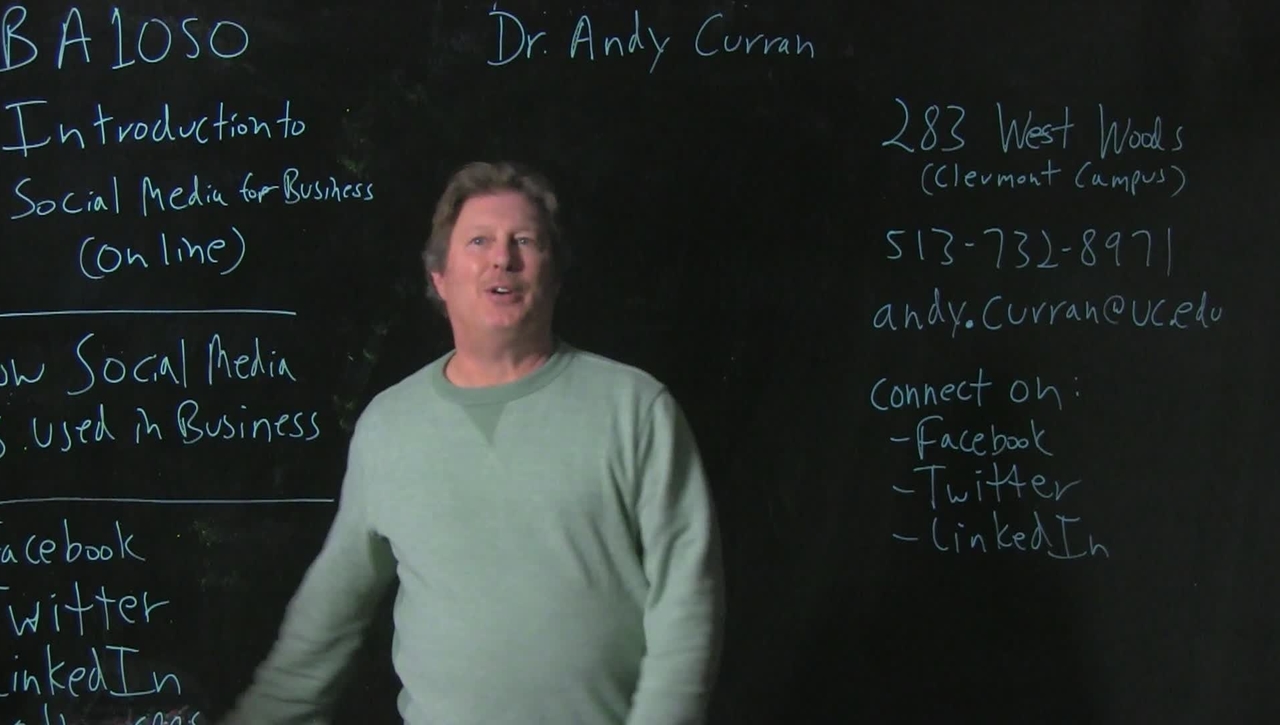 BA1050
Introduction to
Social Media for Business
(online)
ow Social Media
s used in Business
acebook
Twitter
LinkedIn
Dr. Andy Curran
283 West Woods
(Clermont Campus)
513-732-8971
andy.curran@uc.edu
Connect on:
-Facebook
-Twitter
-LinkedIn